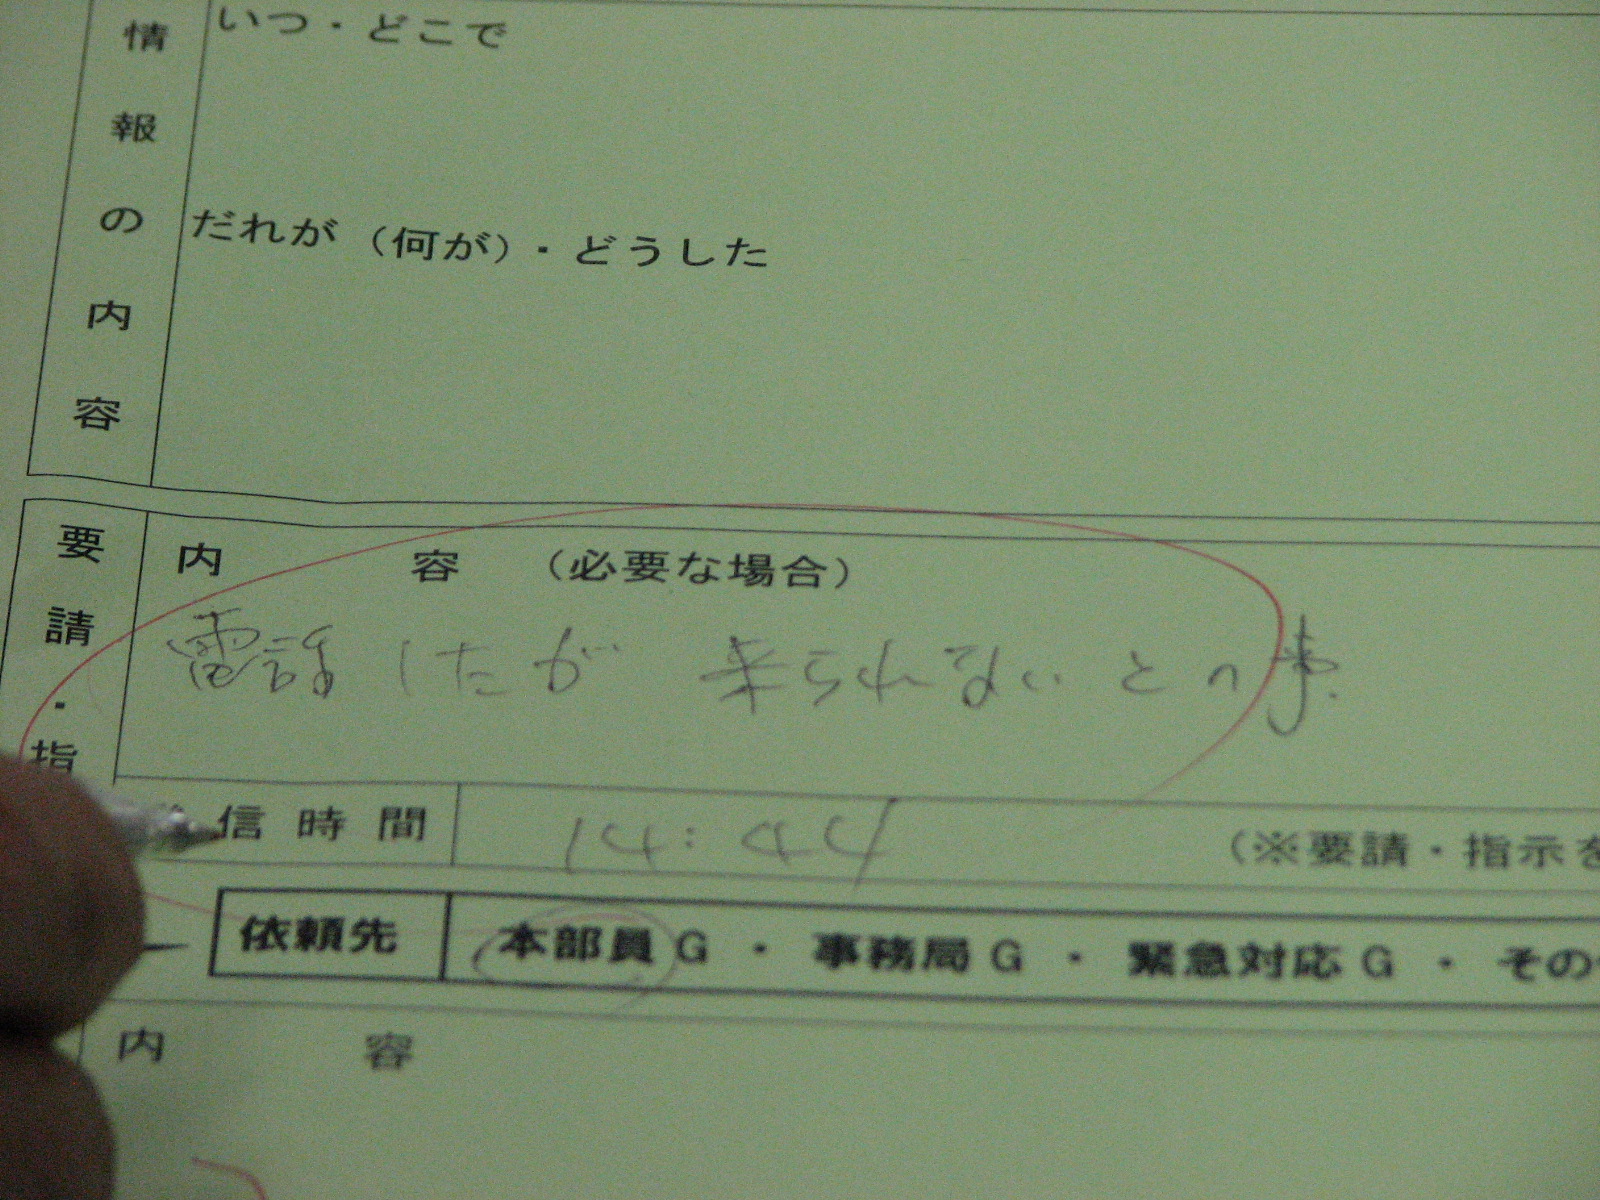 情報の内容
いつ・どこで
だれが（何が）・どうした
要請・指
内　容　（必要な場合）
電話したが 来られないとの事.
信時間
14:44
（※要請・指示を
依頼先
本部員G ・ 事務局G ・ 緊急対応G ・ その
内　容